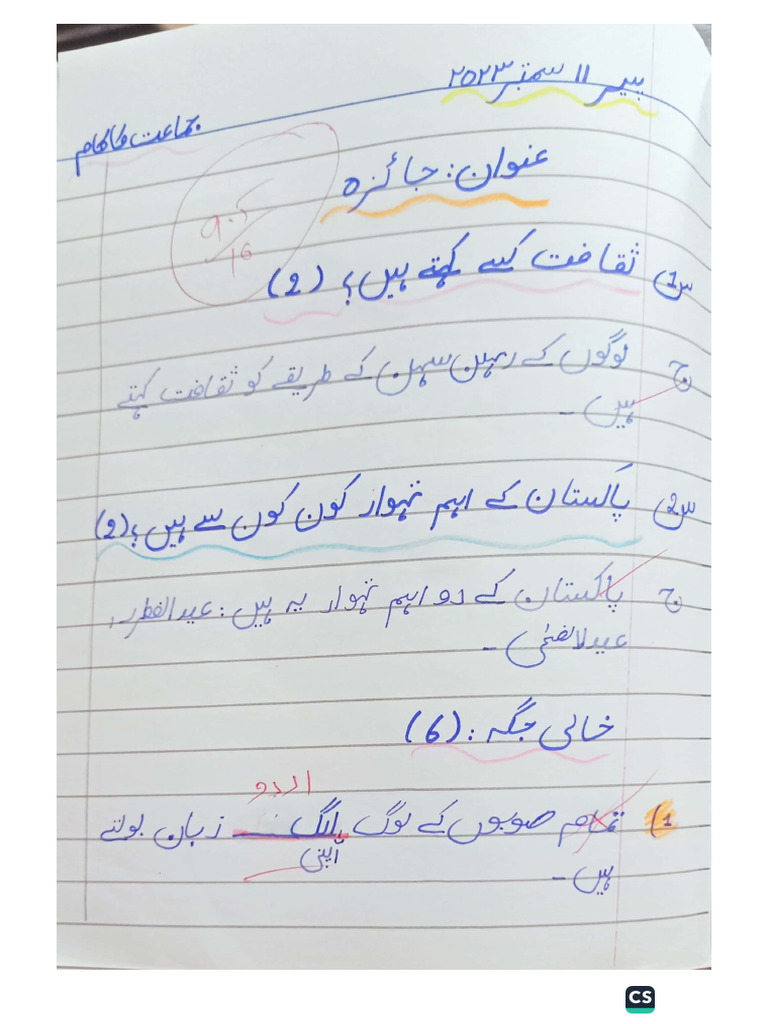 پیر ۱۱ ستمبر ۲۰۲۳
جماعت کا کام
عنوان: جائزہ
9.5/16
س1 ثقافت کسے کہتے ہیں؟ (2)
ج لوگوں کے رہن سہن کے طریقے کو ثقافت کہتے
ہیں ۔
س2 پاکستان کے اہم تہوار کون کون سے ہیں؟ (2)
ج پاکستان کے دو اہم تہوار یہ ہیں: عیدالفطر،
عیدلاضحٰی ۔
خالی جگہ: (6)
اردو
1) تمام صوبوں کے لوگ الگ زبان بولتے
اپنی
ہیں ۔
CS